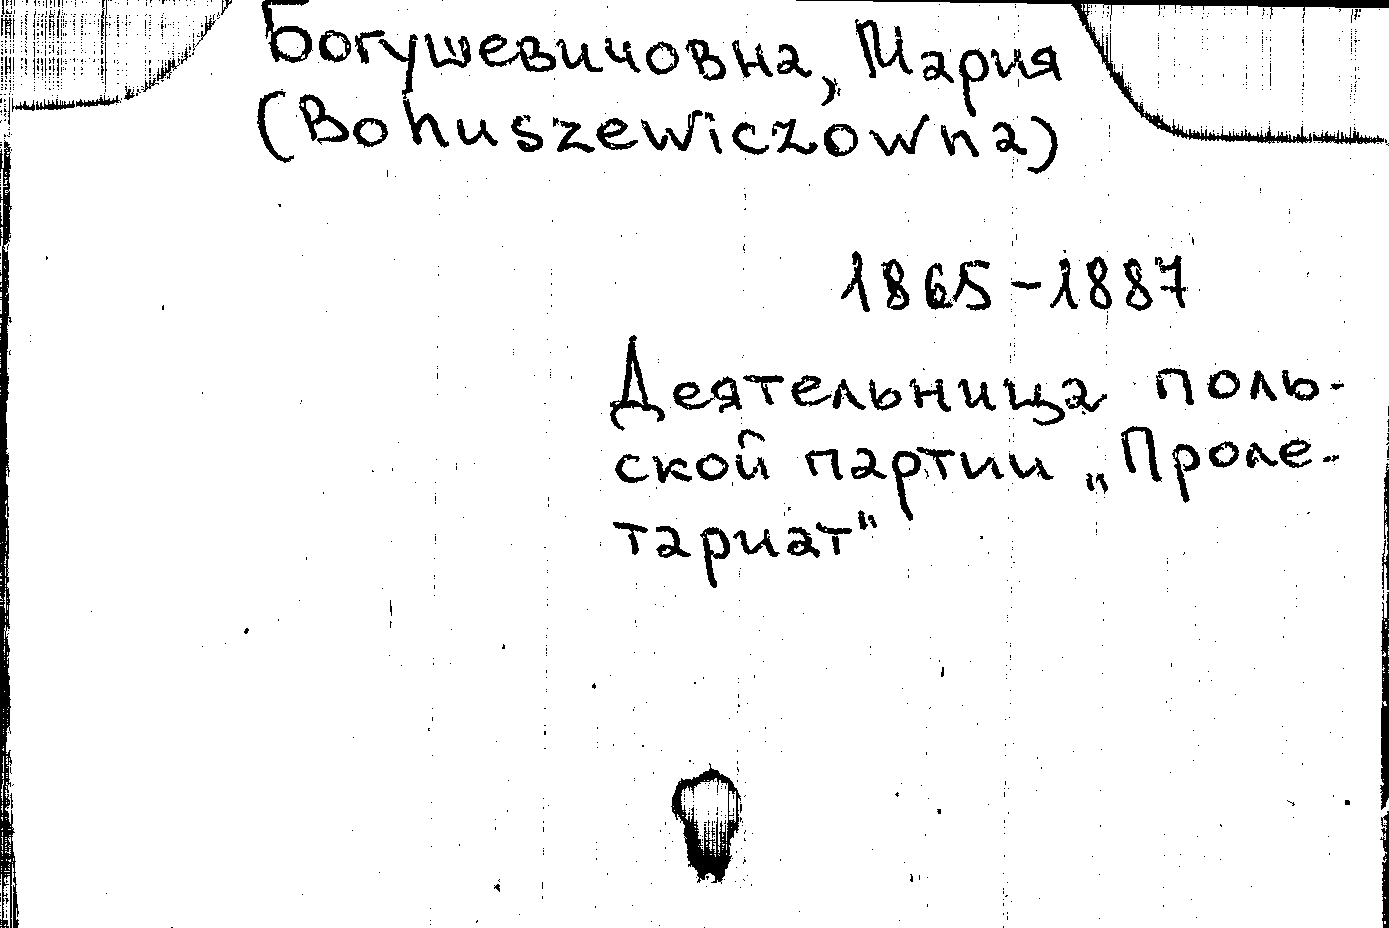 Богушевичовна, Мария
(Bohuszewiczowna)
1865-1887
Деятельница поль-
ской партии „Проле-
тариат"